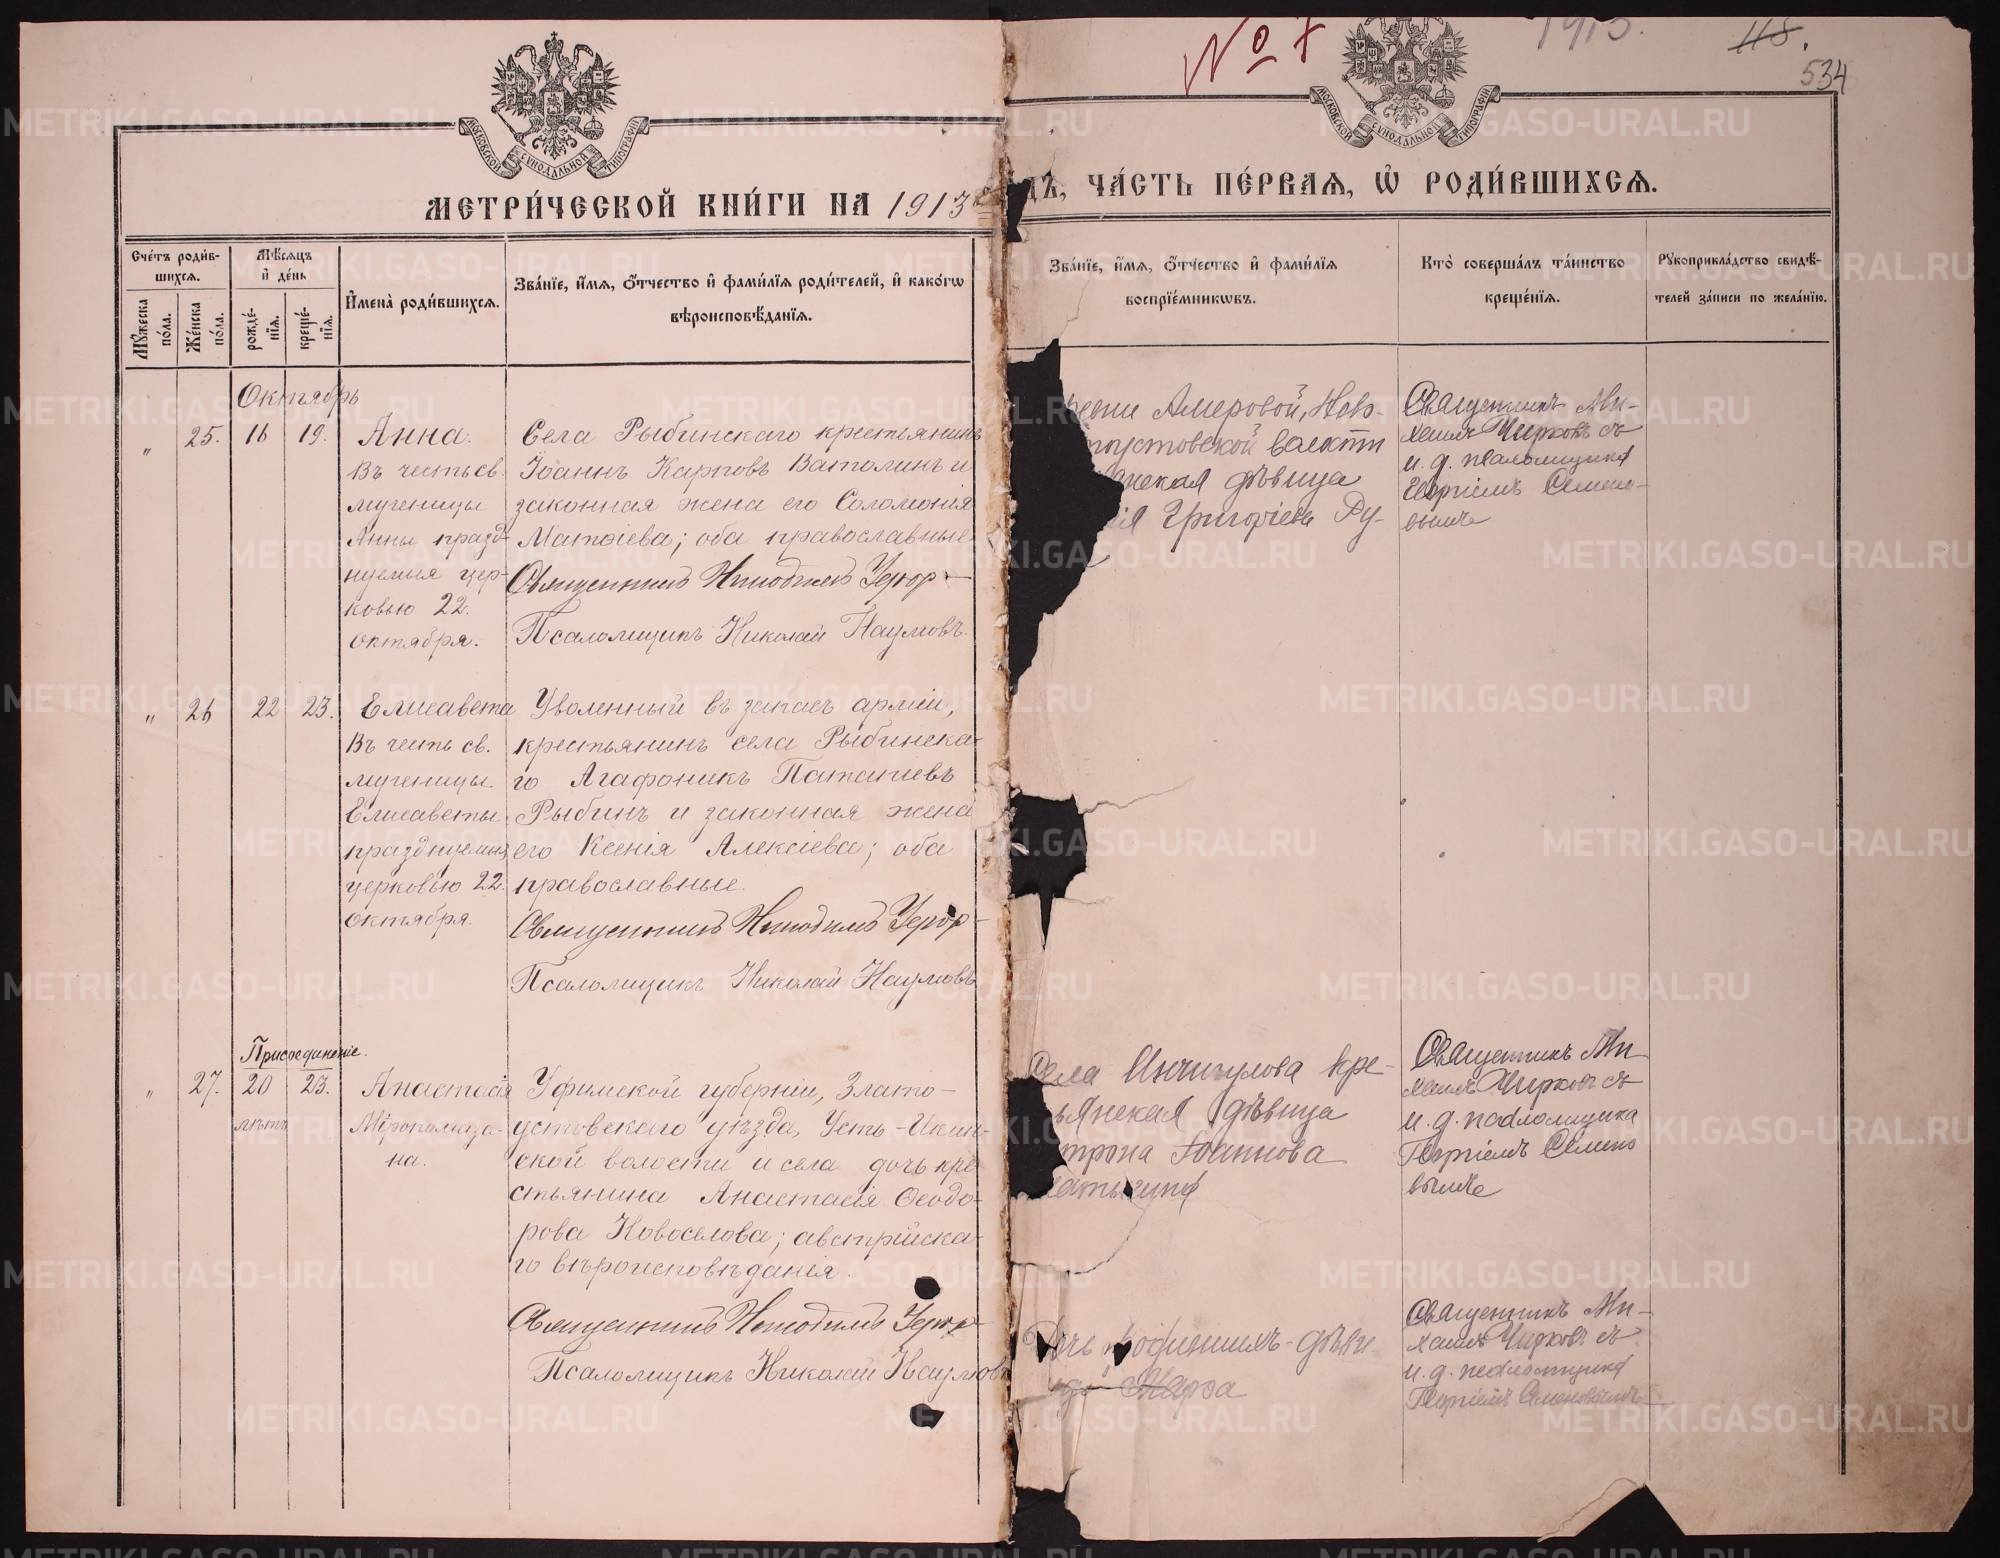 № 7
1913.
118.
534
МОСКОВСКОЙ СѴНОДАЛЬНОЙ ТИПОГРАФІИ
МОСКОВСКОЙ СѴНОДАЛЬНОЙ ТИПОГРАФІИ
МЕТРИ́ЧЕСКОЙ КНИ́ГИ НА 1913
ДЪ, ЧА́СТЬ ПЕ́РВАѦ, Ѡ҆ РОДИ́ВШИХСѦ.
Сче́тъ роди́в-
шихсѧ.
Мꙋ́жеска по́ла.
Же́нска по́ла.
Мѣ́сѧцъ
и҆ де́нь
рожде́-
нїѧ.
креще́-
нїѧ.
И҆мена̀ роди́вшихсѧ.
Зва́нїе, и҆́мѧ, ѻ҆́тчество и҆ фами́лїѧ роди́телей, и҆ како́гѡ
вѣроисповѣ́данїѧ.
Зва́нїе, и҆́мѧ, ѻ҆́тчество и҆ фами́лїѧ
воспрїе́мникѡвъ.
Кто̀ соверша́лъ та́инство
креще́нїѧ.
Рꙋкоприкла́дство свидѣ́-
телей за́писи по жела́нїю.
Октябрь
" 25. 16 19.
Анна.
Въ честь св.
мученицы
Анны празд-
нуемыя цер-
ковью 22.
октября.
Села Рыбинскаго крестьянинъ
Іоаннъ Карповъ Ватолинъ и
законная жена его Соломонія
Матѳіева; оба православные
Священникъ Никодимъ
Псаломщикъ Николай Наумовъ.
Амеровой, Ново-
волости
дѣвица
Григоріева Ру-
Священникъ Ми-
хаилъ Чирковъ съ
и. д. псаломщика
Георгіемъ Семено-
вымъ
" 26 22 23.
Елисавета
Въ честь св.
мученицы.
Елисаветы
празднуемыя
церковью 22.
октября.
Уволенный въ запасъ арміи,
крестьянинъ села Рыбинска-
го Агафоникъ Потапіевъ
Рыбинъ и законная жена
его Ксенія Алексіева; оба
православные.
Священникъ Никодимъ
Псаломщикъ Николай Наумовъ
Присоединеніе.
" 27. 20 23.
лѣтъ
Анастасія
Мѵропомаза-
на.
Уфимской губерніи, Злато-
устовскаго уѣзда, Усть-Икин-
ской волости и села дочь кре
стьянина Анастасія Ѳеодо-
рова Новоселова; австрійска-
го вѣроисповѣданія.
Священникъ Никодимъ
Псаломщикъ Николай Наумовъ
кре-
дѣвица
Іоаннова
Священникъ Ми-
хаилъ Чирковъ съ
и. д. псаломщика
Георгіемъ Семено
вымъ
дѣви-
Марѳа
Священникъ Ми-
хаилъ Чирковъ съ
и. д. псаломщика
Георгіемъ Семеновымъ
METRIKI.GASO-URAL.RU